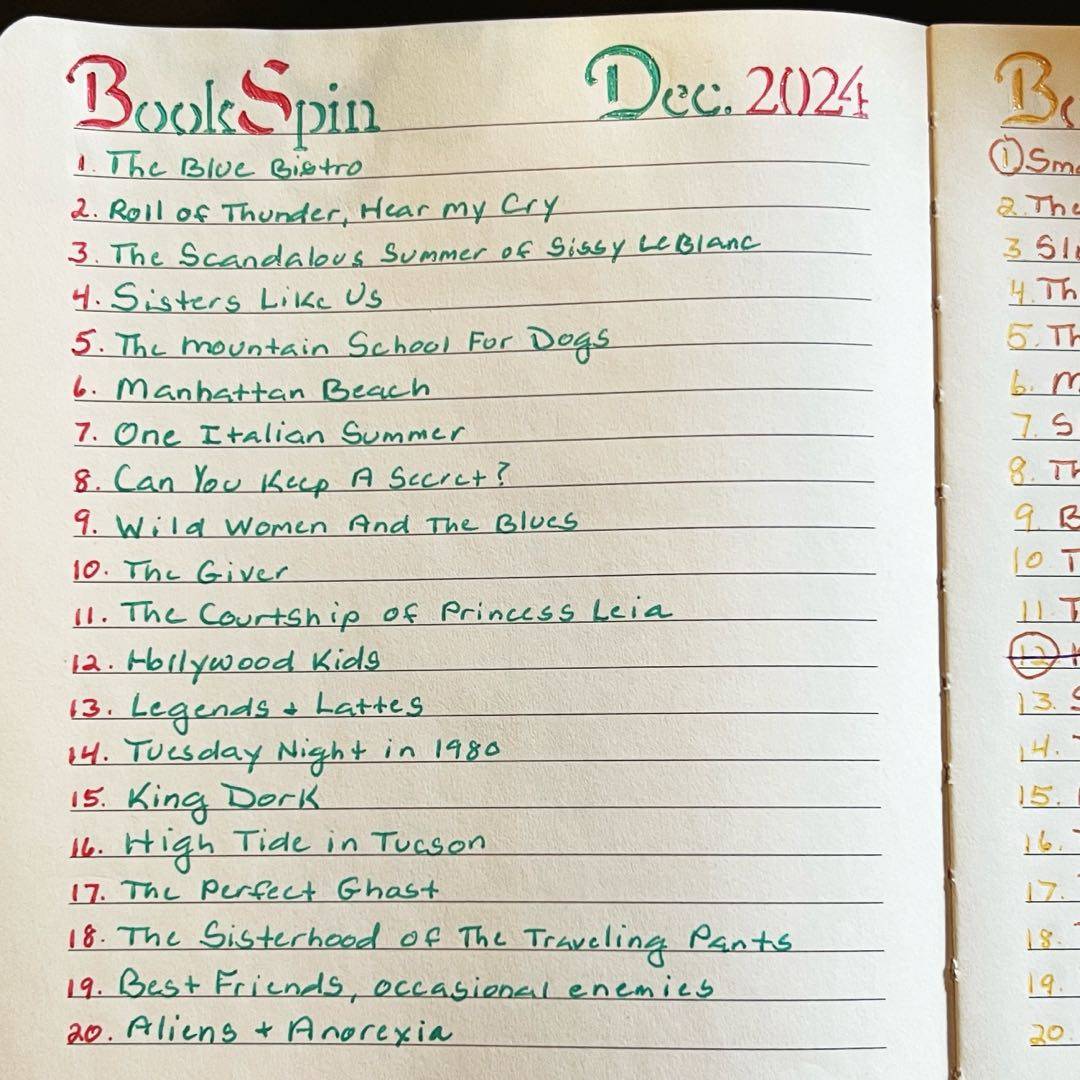 BookSpin Dec. 2024
1. The Blue Bistro
2. Roll of Thunder, Hear my Cry
3. The Scandalous Summer of Sissy LeBlanc
4. Sisters Like Us
5. The mountain School For Dogs
6. Manhattan Beach
7. One Italian Summer
8. Can You Keep A Secret?
9. Wild Women And The Blues
10. The Giver
11. The Courtship of Princess Leia
12. Hollywood Kids
13. Legends + Lattes
14. Tuesday Night in 1980
15. King Dork
16. High Tide in Tucson
17. The Perfect Ghost
18. The Sisterhood of The Traveling Pants
19. Best Friends, occasional enemies
20. Aliens + Anorexia
1 Sm
2. The
3
4. Th
5. Th
6. M
7. S
8. Th
9. B
10 T
11 T
12
13. S
14.
15.
16.
17.
18.
19.
20.